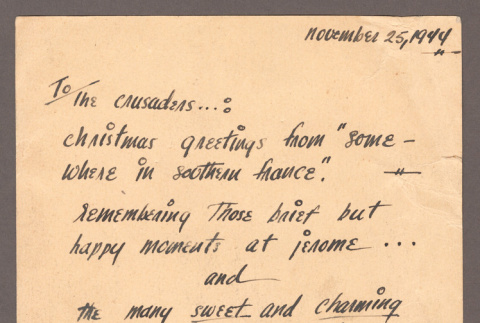 november 25, 1944
To the crusaders...:
christmas greetings from "some-
where in southern france".
remembering those brief but
happy moments at jerome ...
and
the many sweet and charming